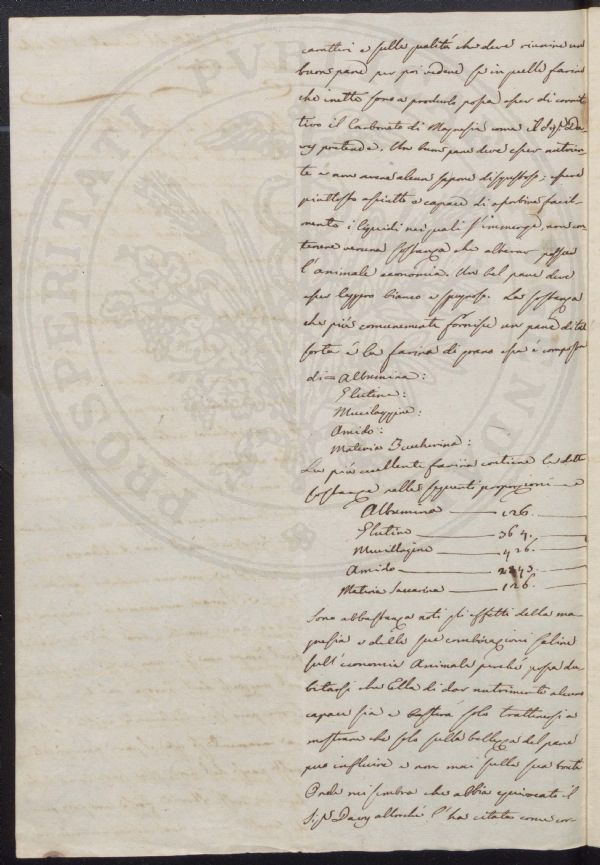 caratteri e sulle qualità che deve riunire un
buon pane per poi vedere se in quelle farine
che inette sono a produrlo possa esser di corret
tivo il Carbonato di Magnesia come il Sig.r Da
vy pretende. Un buon pane deve esser nutrien
te e non avere alcun sapore disgustoso; essere
piuttosto asciutto e capace di assorbire facil
mente i liquidi nei quali s'immerge, non con
tenere veruna sostanza che alterar possa
l'animale economia. Un bel pane deve
esser leggero bianco e spugnoso. La sostanza
che più comunemente fornisce un pane di tal
sorta è la farina di grano essa è composta
di = Albumina:
Glutine:
Mucilaggine:
Amido:
Materia Zuccherina:
La più eccellente farina contiene le dette
sostanze nelle seguenti proporzioni
Albumina — 126.
Glutine — 364.
Mucillagine — 426.
Amido — 2243.
Materia Saccarina — 126.
Sono abbastanza noti gli effetti della ma
gnesia e delle sue combinazioni saline
sull'economia Animale perché possa du
bitarsi che Ella di dar nutrimento alcuno
capace sia e basterà solo trattenersi a
mostrare che solo sulla bellezza del pane
può influire e non mai sulla sua bontà
Onde mi sembra che abbia equivocato il
Sig.r Davy allorché l'ha citato come cor